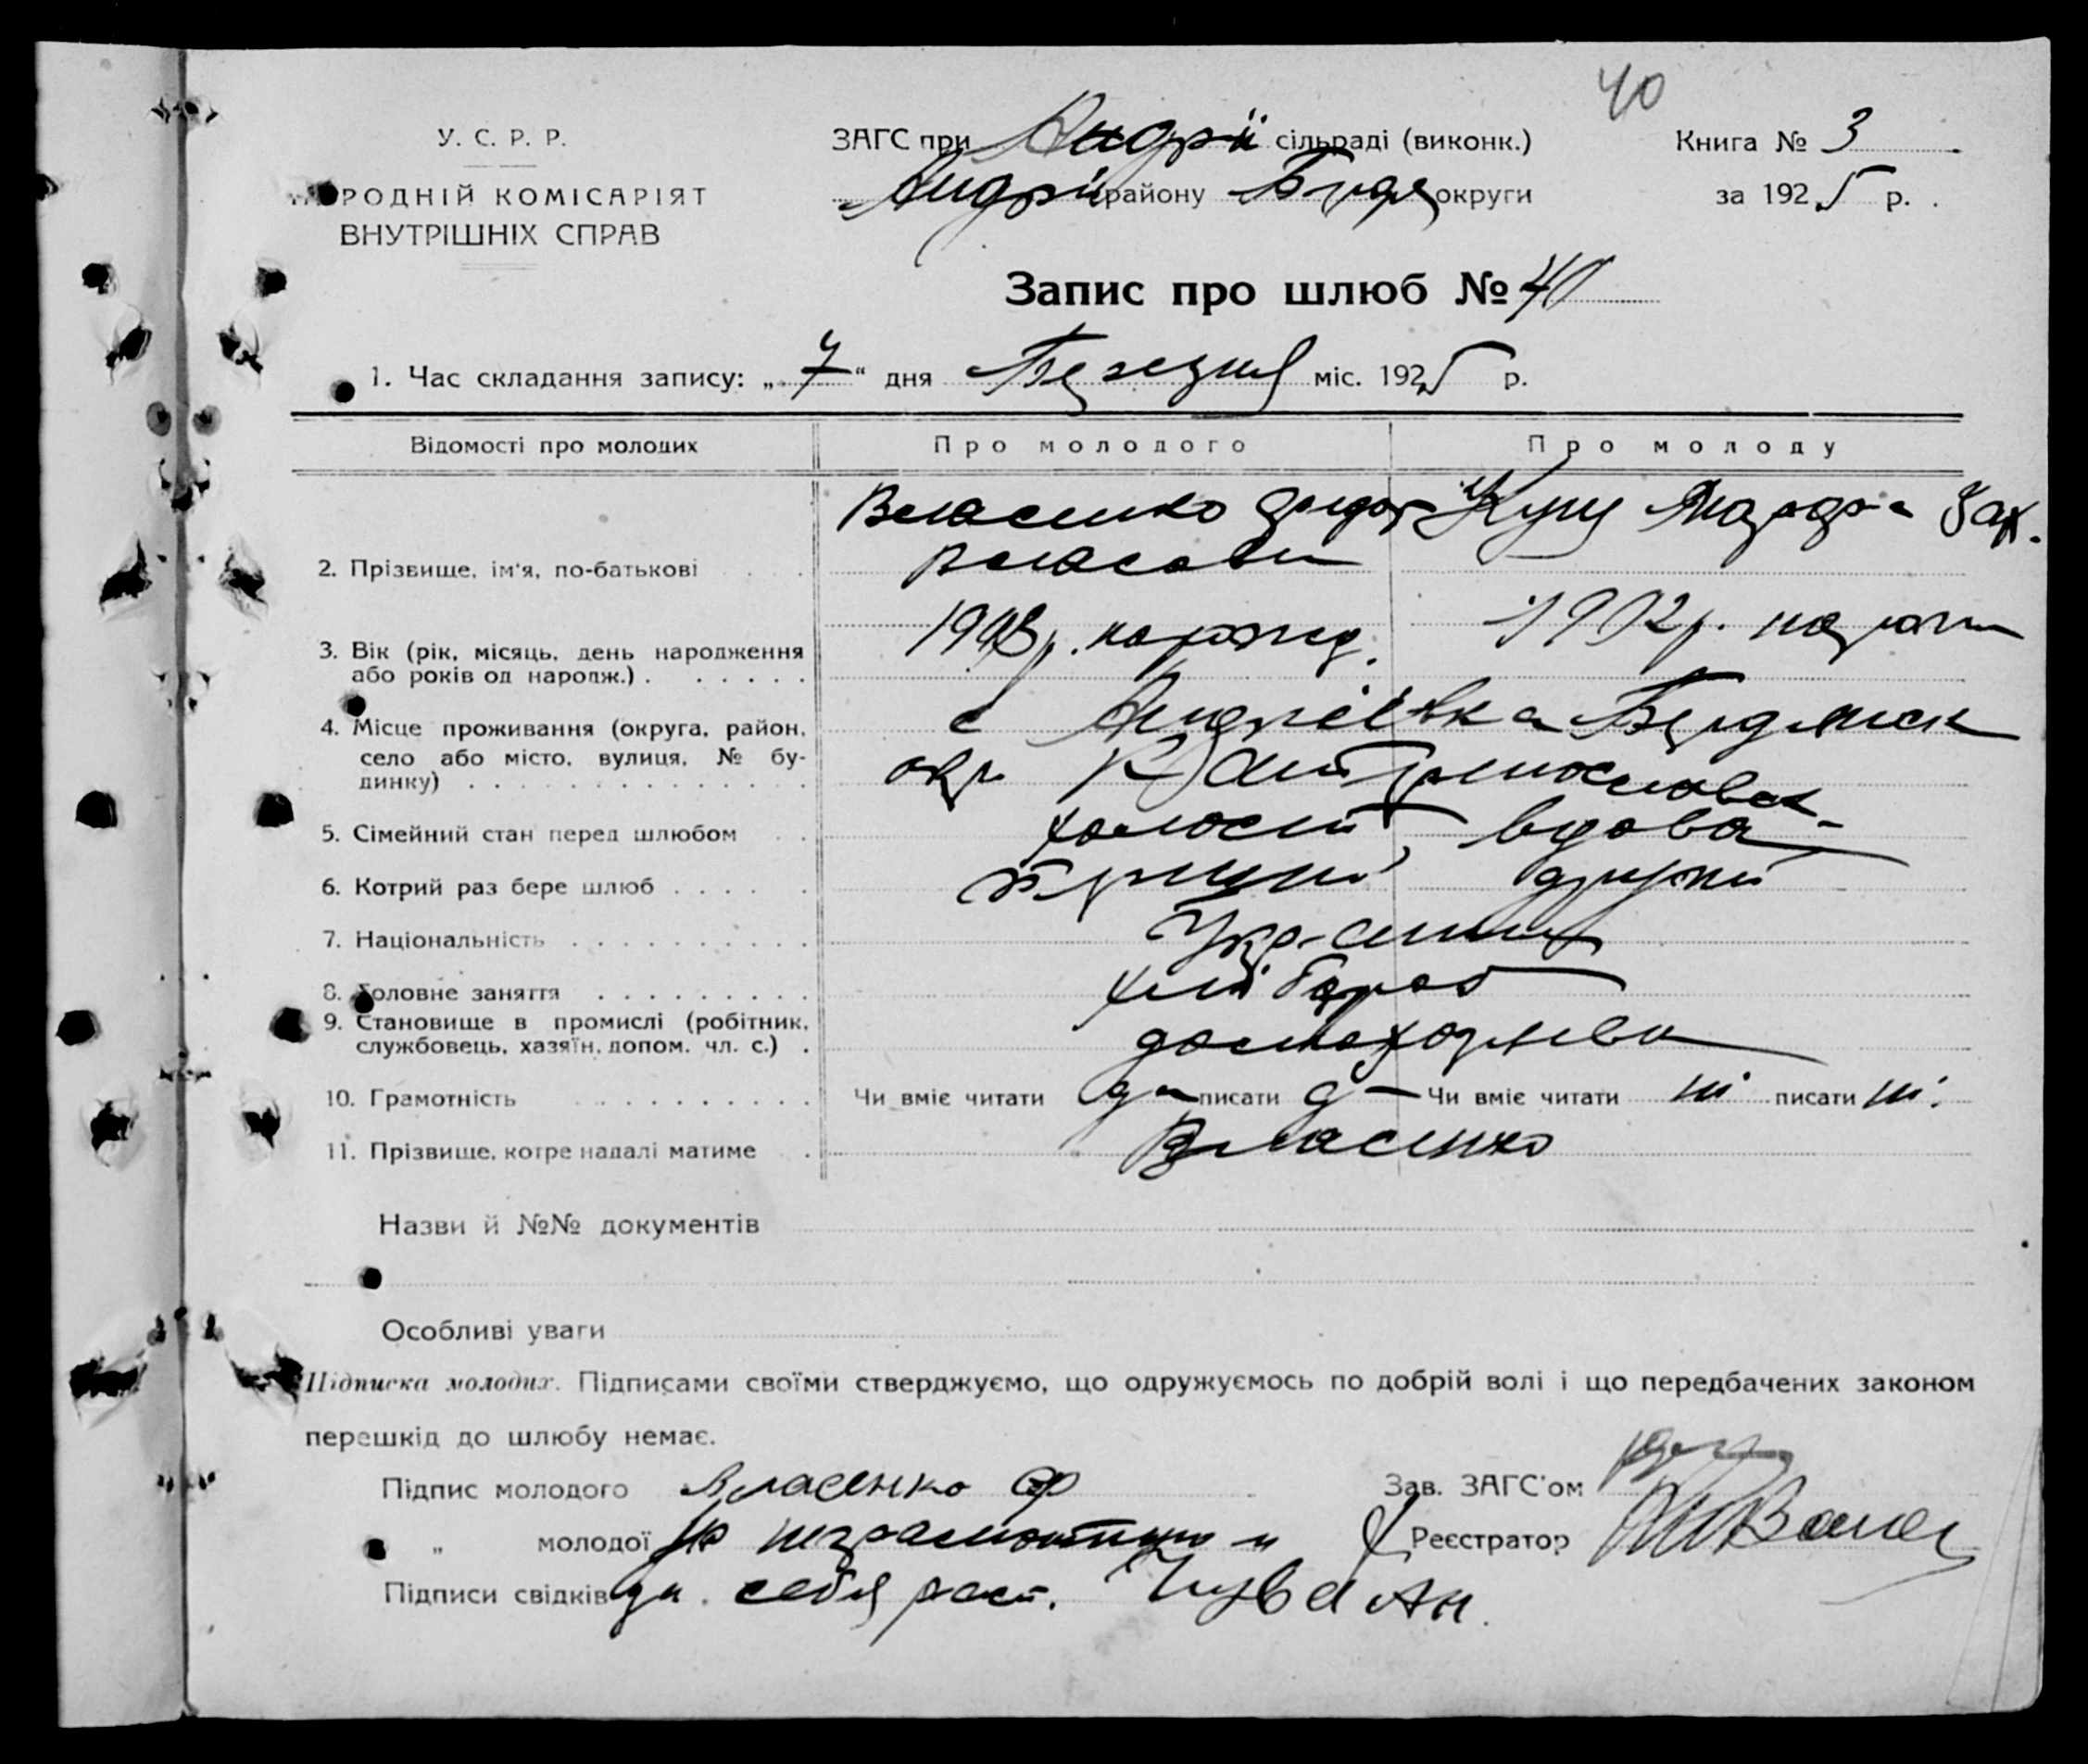 40
У. С. Р. Р.
РОДНІЙ КОМІСАРІЯТ
ВНУТРІШНІХ СПРАВ
ЗАГС при Андрії сільраді (виконк.)
Андрії району Берд округи
Книга № 3
за 1925 р.
Запис про шлюб № 40
1. Час складання запису: „7“ дня Березня міс. 1925 р.
Відомості про молодих Про молодого Про молоду
2. Прізвище, ім'я, по-батькові Власенко Федор Власови Зах.
3. Вік (рік, місяць, день народження
або років од народж.) 1903р. нарожд. 1902р.
4. Місце проживання (округа, район,
село або місто, вулиця, № бу-
динку) с Андріївка Бердянск
окр Катеринославск
5. Сімейний стан перед шлюбом холост вдова
6. Котрий раз бере шлюб перший другий
7. Національність
8. Головне заняття хлібороб
9. Становище в промислі (робітник,
службовець, хазяїн, допом. чл. с.) домохозяева
10. Грамотність Чи вміє читати да писати да Чи вміє читати ні писати ні.
11. Прізвище, котре надалі матиме Власенко
Назви й №№ документів
Особливі уваги
Підписка молодих. Підписами своїми стверджуємо, що одружуємось по добрій волі і що передбачених законом
перешкід до шлюбу немає.
Підпис молодого Власенко Ф Зав. ЗАГС'ом
„ молодої Реєстратор
Підписи свідків себя расп. Чува Ан.